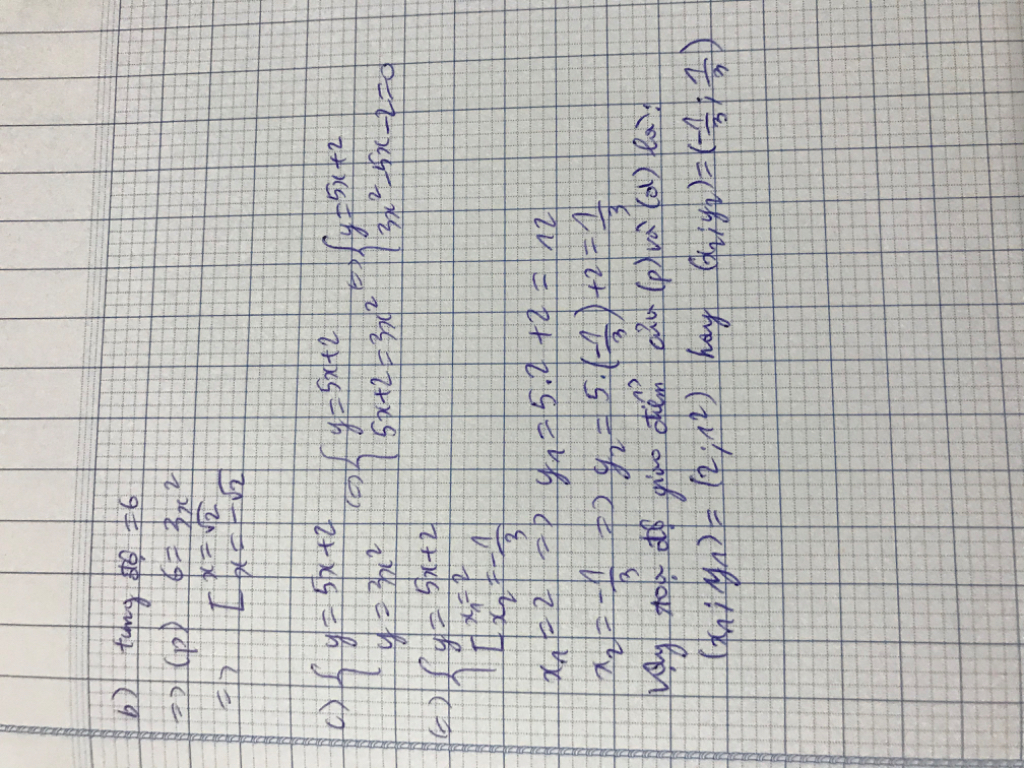 b) tung độ = 6
=> (P) 6 = 3x²
=> [ x = √2
x = -√2
c) { y = 5x + 2 (=) { y = 5x + 2 (=) { y = 5x + 2
y = 3x² 5x + 2 = 3x² 3x² - 5x - 2 = 0
(=) { y = 5x + 2
[ x₁ = 2
x₂ = -1/3
x₁ = 2 => y₁ = 5.2 + 2 = 12
x₂ = -1/3 => y₂ = 5.(-1/3) + 2 = 1/3
Vậy toạ độ giao điểm của (P) và (d) là:
(x₁; y₁) = (2; 12) hay (x₂; y₂) = (-1/3; 1/3)